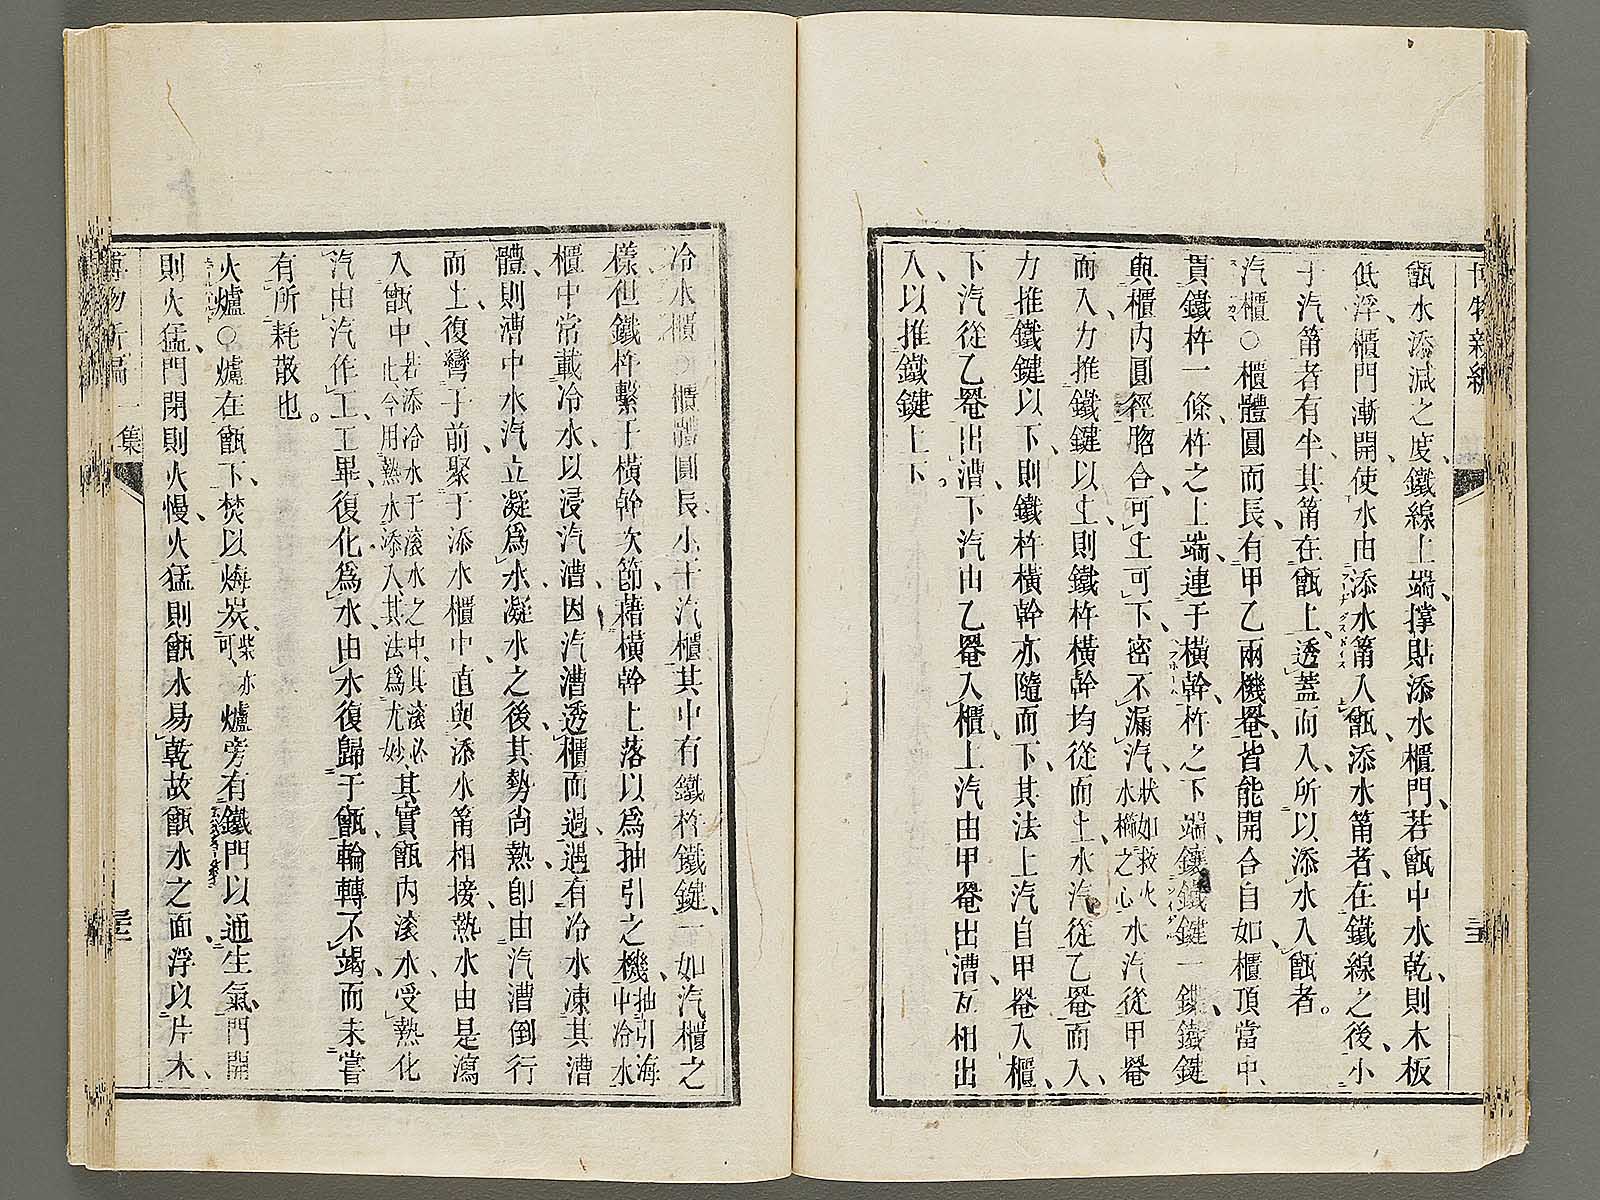 博物新編
甑水添減之度、鐵線上端、撑貼添水櫃門、若甑中水乾、則木板
低浮、櫃門漸開、使水由添水筩入甑、添水筩者、在鐵線之後、小
于汽筩者有半、其筩在甑上、透蓋而入、所以添水入甑者。
汽櫃○櫃體圓而長、有甲乙兩機罨、皆能開合自如、櫃頂當中、
貫鐵杵一條、杵之上端、連于橫幹、杵之下端、鑲鐵鍵一鐵鍵
與櫃內圓徑脗合、可上可下、密不漏汽、狀如救火水櫃之心水汽從甲罨
而入、力推鐵鍵以上、則鐵杵橫幹均從而上、水汽從乙罨而入、
力推鐵鍵以下、則鐵杵橫幹亦隨而下、其法上汽自甲罨入櫃、
下汽從乙罨出漕、下汽由乙罨入櫃、上汽由甲罨出漕、互相出
入、以推鐵鍵上下。
冷水櫃○櫃體圓長、小于汽櫃、其中有鐵杵鐵鍵、一如汽櫃之
樣、但鐵杵繫于橫幹次節、藉橫幹上落、以爲抽引之機、抽引海中冷水
櫃中常載冷水、以浸汽漕、因汽漕透櫃而過、過有冷水凍其漕
體、則漕中水汽立凝爲水、凝水之後、其勢尙熱、卽由汽漕倒行
而上、復彎于前、聚于添水櫃中、直與添水筩相接、熱水由是瀉
入甑中、若添冷水于滾水之中、其滾必止、今用熱水添入、其法爲尤妙、其實甑內滾水、受熱化
汽、由汽作工、工畢復化爲水、由水復歸于甑、輪轉不竭、而未嘗
有所耗散也。
火爐○爐在甑下、焚以煤炭、柴亦可、爐旁有鐵門、以通生氣、門開
則火猛、門閉則火慢、火猛則甑水易乾、故甑水之面、浮以片木、
博物新編 一集